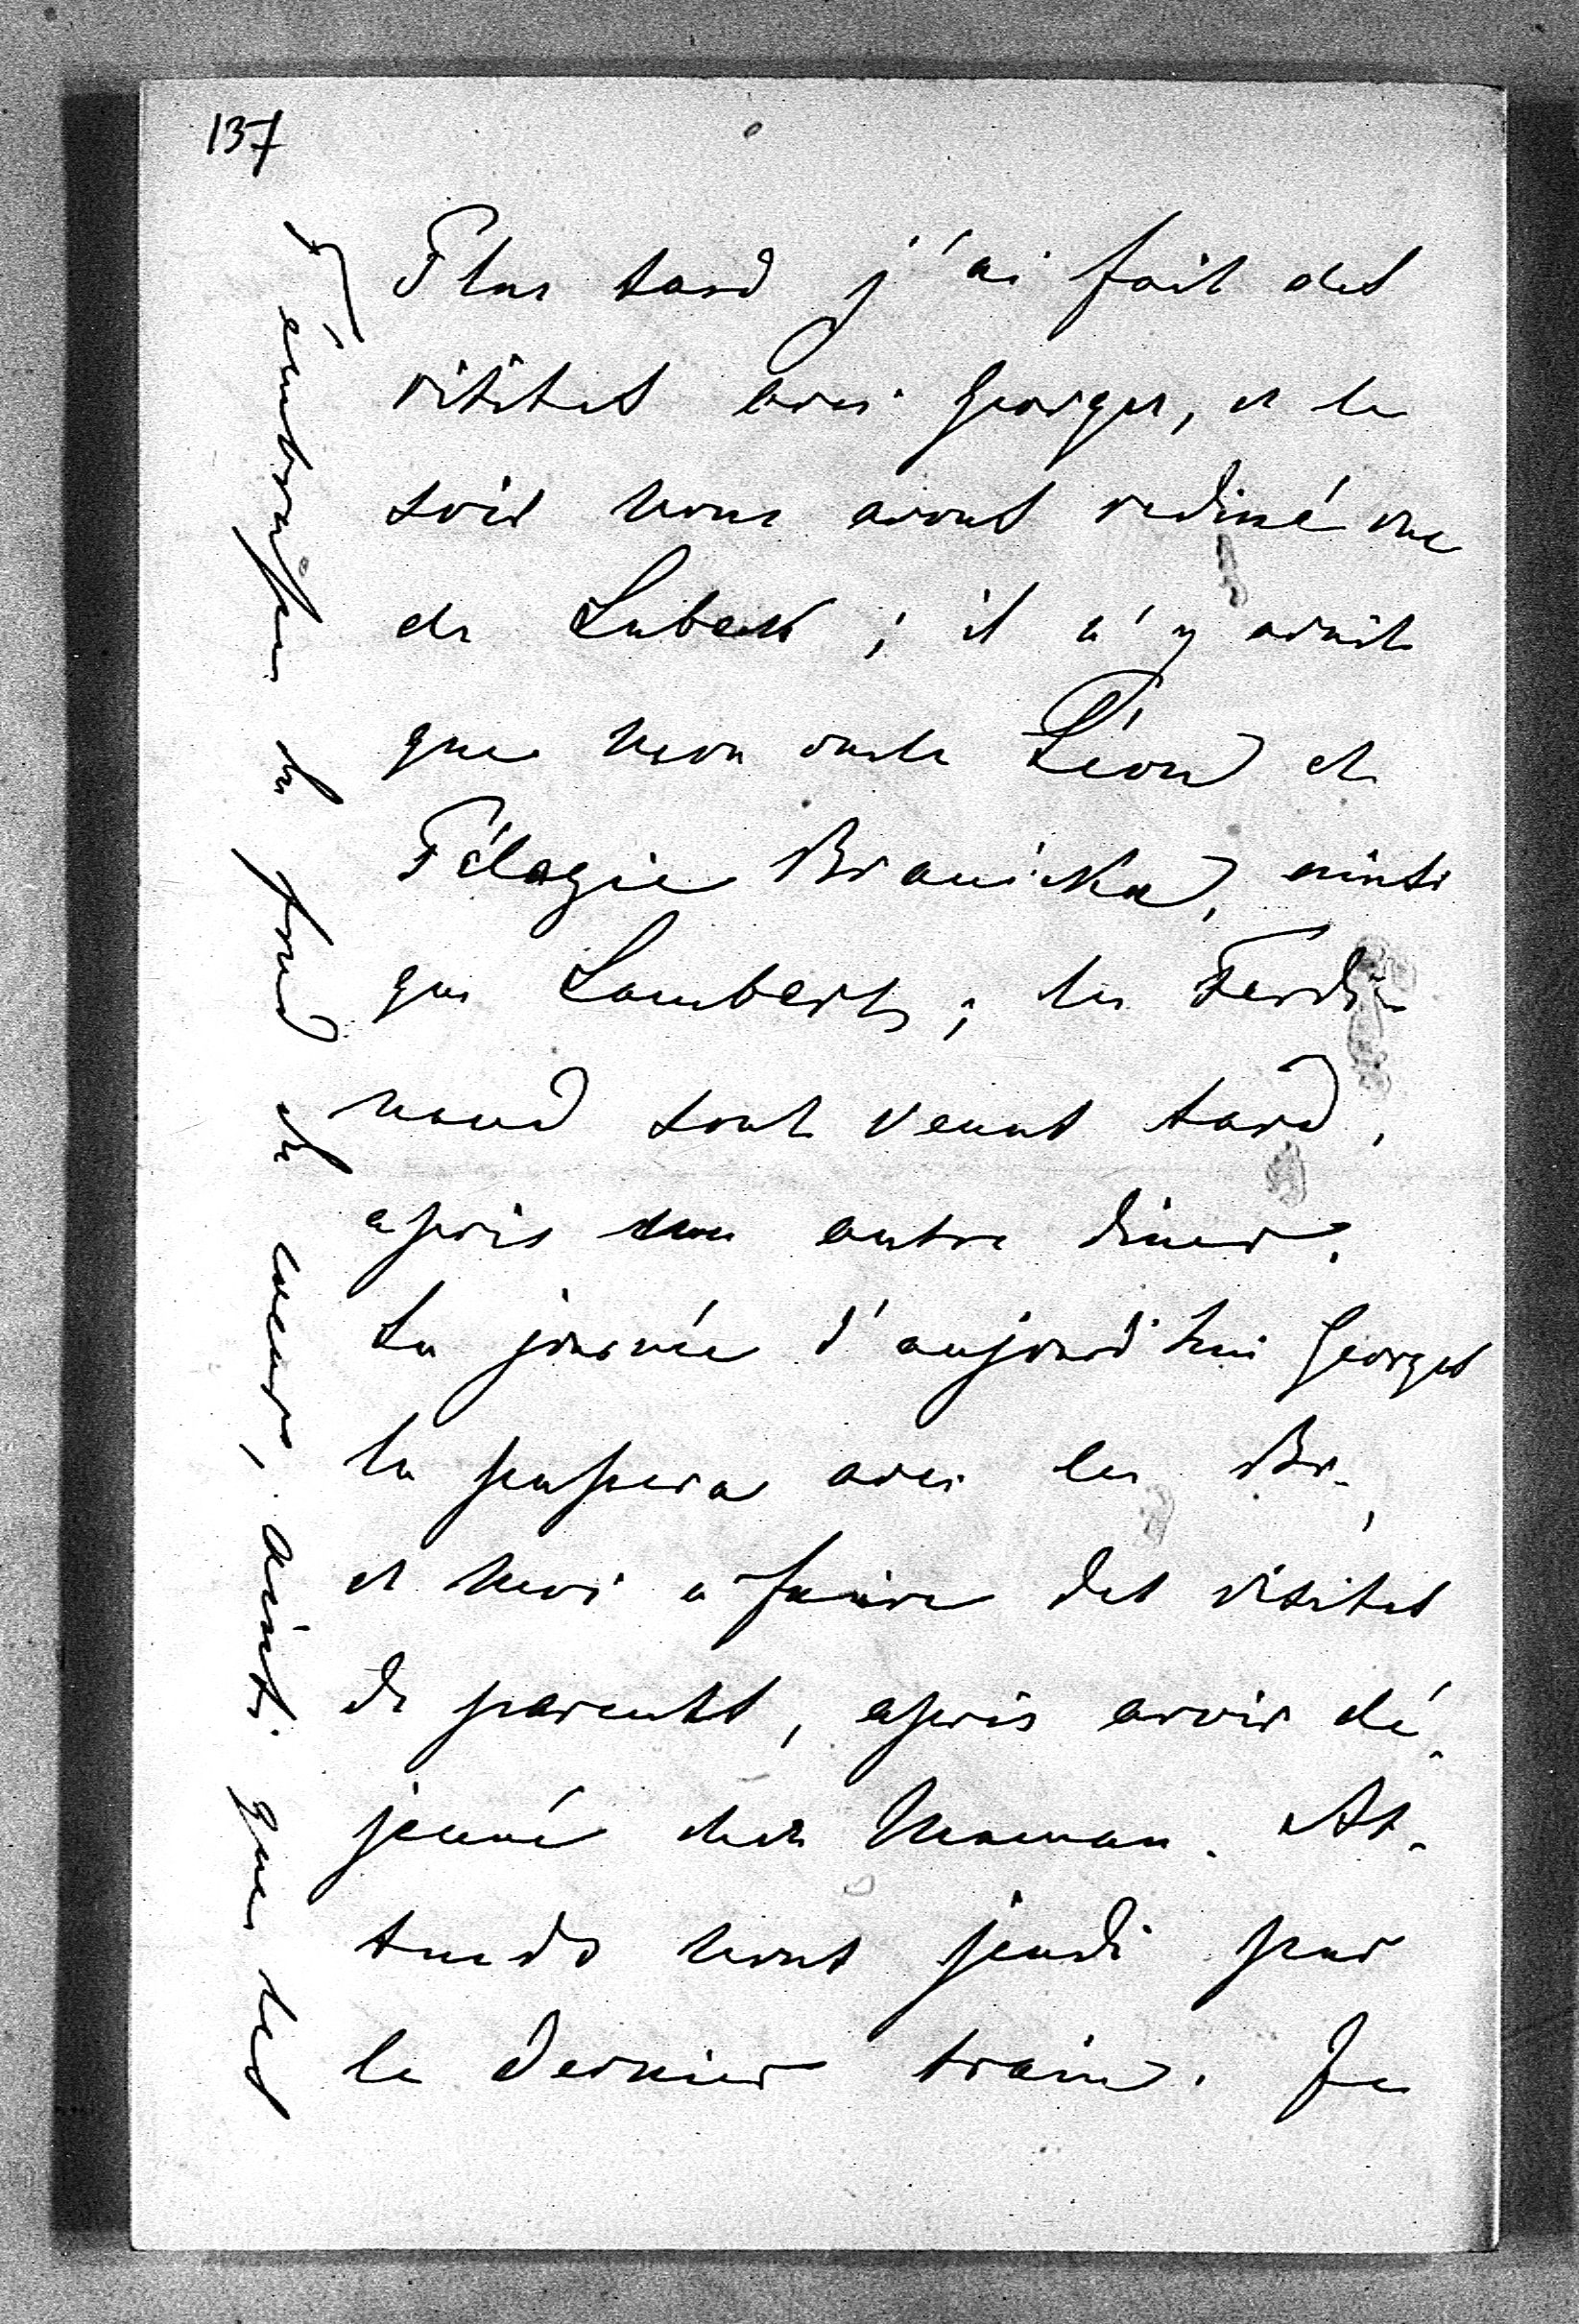 137
Plus tard j'ai fait des
visites avec Georges, et le
soir nous avons rediné rue
de Lubeck ; il n'y avait
que mon oncle Léon et
Pélagie Branicka, ainsi
que Lambert ; les Ferdi-
nand sont venus tard,
après un autre diner.
La journée d'aujourd'hui Georges
la passera avec les Br.,
et moi à faire des visites
de parents, après avoir dé-
jeuné chez Maman. At-
tends nous jeudi par
le dernier train. Je
t'embrasse du fond du coeur, ainsi que les